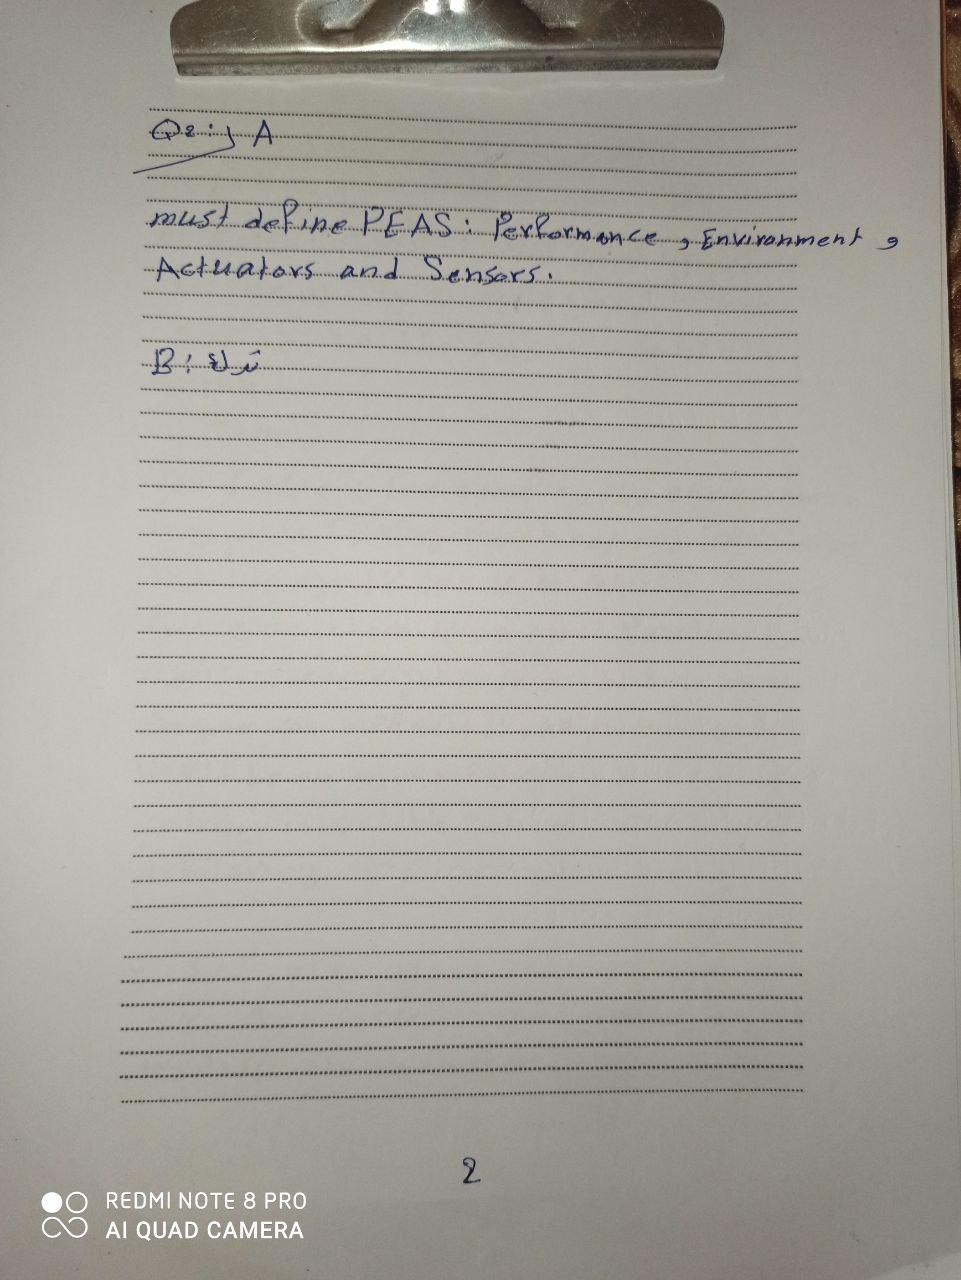 Q2: A
must define PEAS: Performance, Environment,
Actuators and Sensors.
B: ترك
2
REDMI NOTE 8 PRO
AI QUAD CAMERA